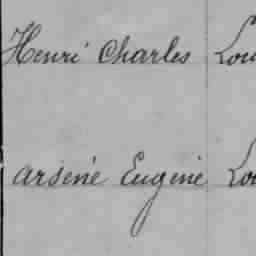 Henri Charles Lou
arsène Eugène Lou